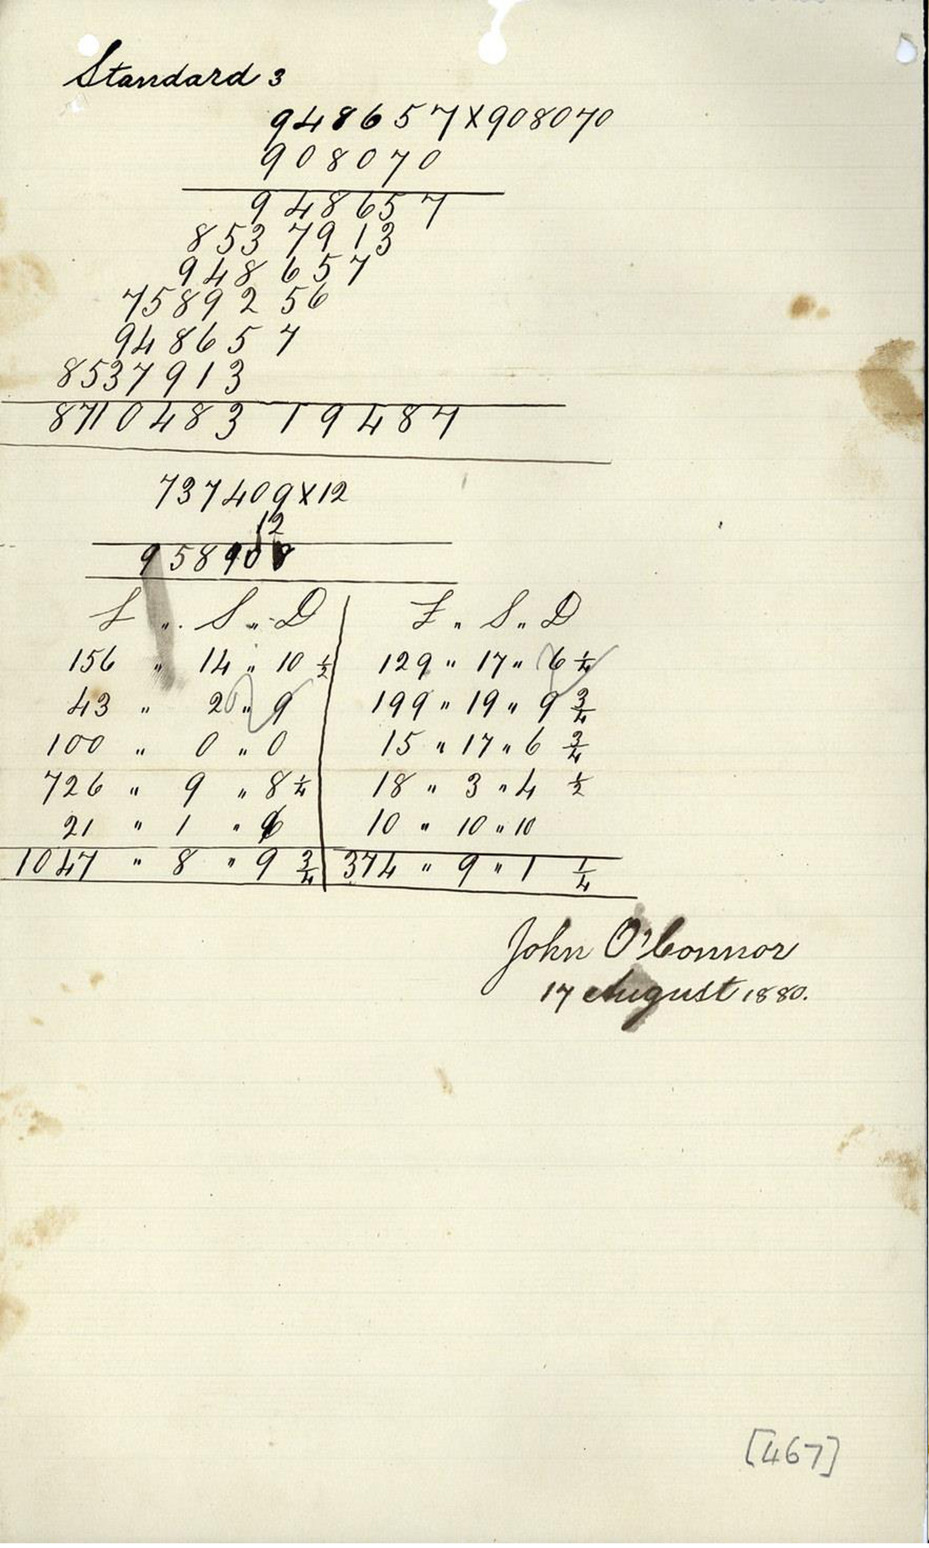 Standard 3
948657X908070
908070
948657
8537913
948657
7589256
948657
8537913
8710483 19487
737409X12
12
958908
£ " S " D £ " S " D
156 " 14 " 10 1/2 129 " 17 " 6 1/4
43 " 20 " 9 199 " 19 " 9 3/4
100 " 0 " 0 15 " 17 " 6 3/4
726 " 9 " 8 1/4 18 " 3 " 4 1/2
21 " 1 " 10 " 10 " 10
1047 " 8 " 9 3/4 374 " 9 " 1 1/4
John O'Connor
17 August 1880.
[467]